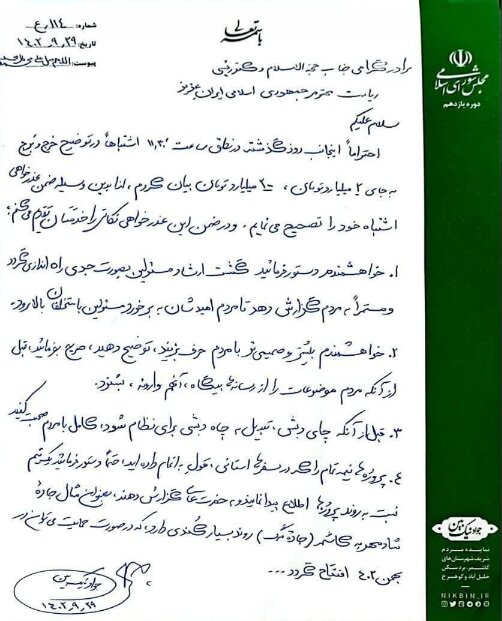 باسمه تعالی
شماره: ۱۱۴/ع
تاریخ: ۱۴۰۲,۹,۲۹
پیوست:
برادر گرامی جناب حجة الاسلام دکتر رئیسی
ریاست محترم جمهوری اسلامی ایران عزیز
سلام علیکم
احتراماً اینجانب روز گذشته در نطق ساعت ۱۱,۳۰ اشتباهاً در توضیح
به جای ۲ میلیارد تومان، میلیارد تومان بیان کردم، لذا بدین وسیله ضمن عذرخواهی
اشتباه خود را تصحیح می نمایم. و در ضمن این عذرخواهی نکاتی را خدمتتان تقدیم می کنم:
۱. خواهشمندم دستور فرمائید گشت ارشاد مسئولین بصورت جدی راه اندازی گردد
و مستمراً به مردم گزارش دهد تا مردم امیدشان به برخورد مسئولین با متخلفان بالا رود.
۲. خواهشمندم بیشتر و صمیمی تر با مردم حرف بزنید، توضیح دهید، صریح بفرمائید، قبل
از آنکه مردم موضوعات را از رسانه های بیگانه، آنهم وارونه، بشنوند.
۳. قبل از آنکه چای دبش، تبدیل به چاه دبشی برای نظام شود، کامل با مردم صحبت کنید
۴. پروژه های نیمه تمام را که در سفرهای استانی، قول به اتمام داده اید، حتماً دستور فرمائید تیم
نسبت به روند پروژه ها اطلاع پیدا نمایند و به حضرتعالی گزارش دهند، بعنوان مثال جادهٔ
شادمهر به کاشمر (جادهٔ مرگ) روند بسیار کندی دارد، که در صورت حمایت می توان در
بهمن ۱۴۰۲ افتتاح گردد...
جواد نیک بین
۱۴۰۲,۹,۲۹
مجلس شورای اسلامی
دوره یازدهم
جواد نیک بین
نماینده مردم
شریف شهرستان های
کاشمر، بردسکن
خلیل آباد و کوهسرخ
NIKBIN_IR